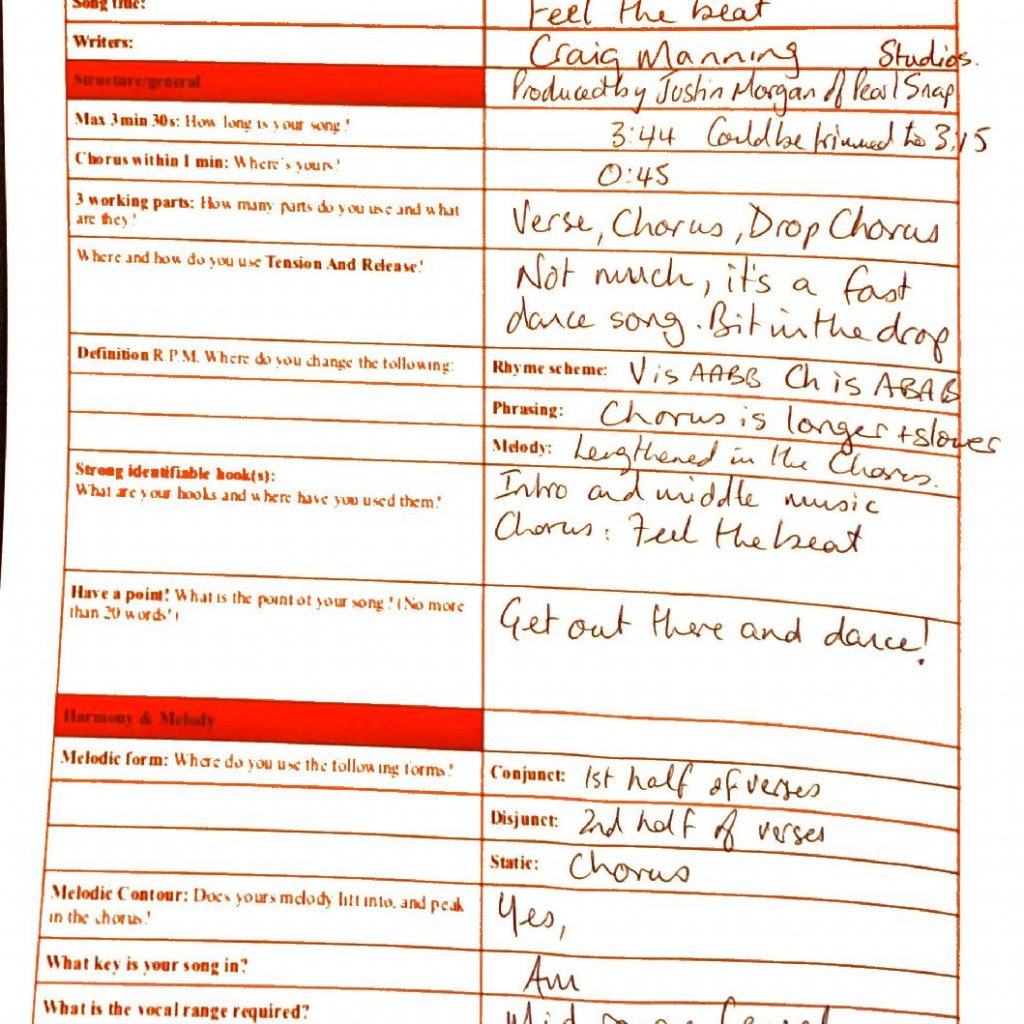 Song title: Feel the beat
Writers: Craig Manning Studios.
Structure/general Produced by Justin Morgan of Pearl Snap
Max 3min 30s: How long is your song? 3:44 Could be trimmed to 3:15
Chorus within 1 min: Where's yours? 0:45
3 working parts: How many parts do you use and what
are they? Verse, Chorus, Drop Chorus
Where and how do you use Tension And Release? Not much, it's a fast
dance song. Bit in the drop
Definition R.P.M. Where do you change the following: Rhyme scheme: V is AABB Ch is ABAB
Phrasing: Chorus is longer + slower
Melody: Lengthened in the Chorus.
Strong identifiable hook(s):
What are your hooks and where have you used them? Intro and middle music
Chorus: Feel the beat
Have a point! What is the point of your song? (No more
than 20 words!) Get out there and dance!
Harmony & Melody
Melodic form: Where do you use the following forms? Conjunct: 1st half of verses
Disjunct: 2nd half of verses
Static: Chorus
Melodic Contour: Does yours melody lift into, and peak
in the chorus? Yes,
What key is your song in? Am
What is the vocal range required? Mid range